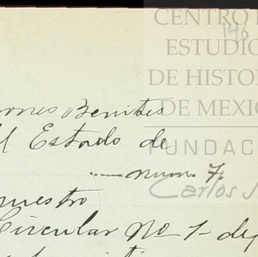 CENTRO
ESTUDIO
DE HISTOR
DE MEXIC
146
FUNDAC
Carlos S
Benites
el Estado de
num 7.
nuestro
Circular No 1- de